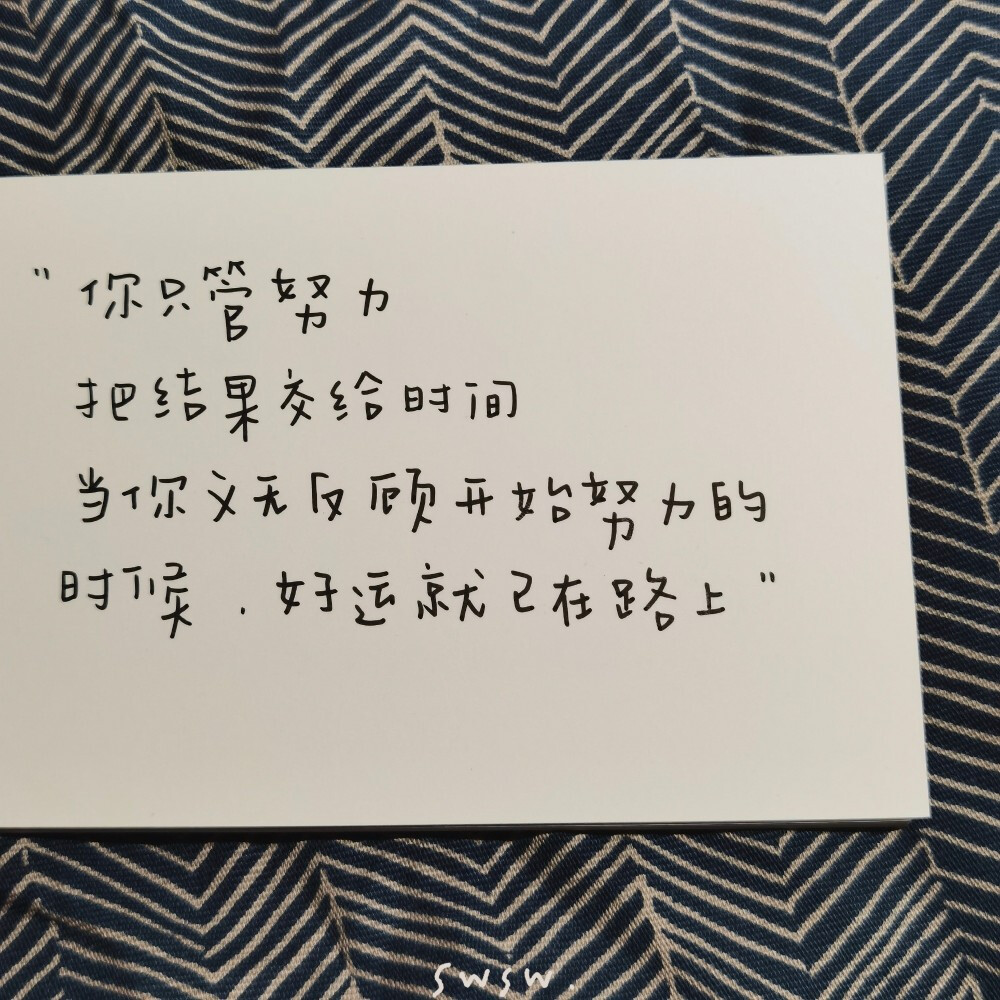 "你只管努力
把结果交给时间
当你义无反顾开始努力的
时候.好运就已在路上"
swsw.